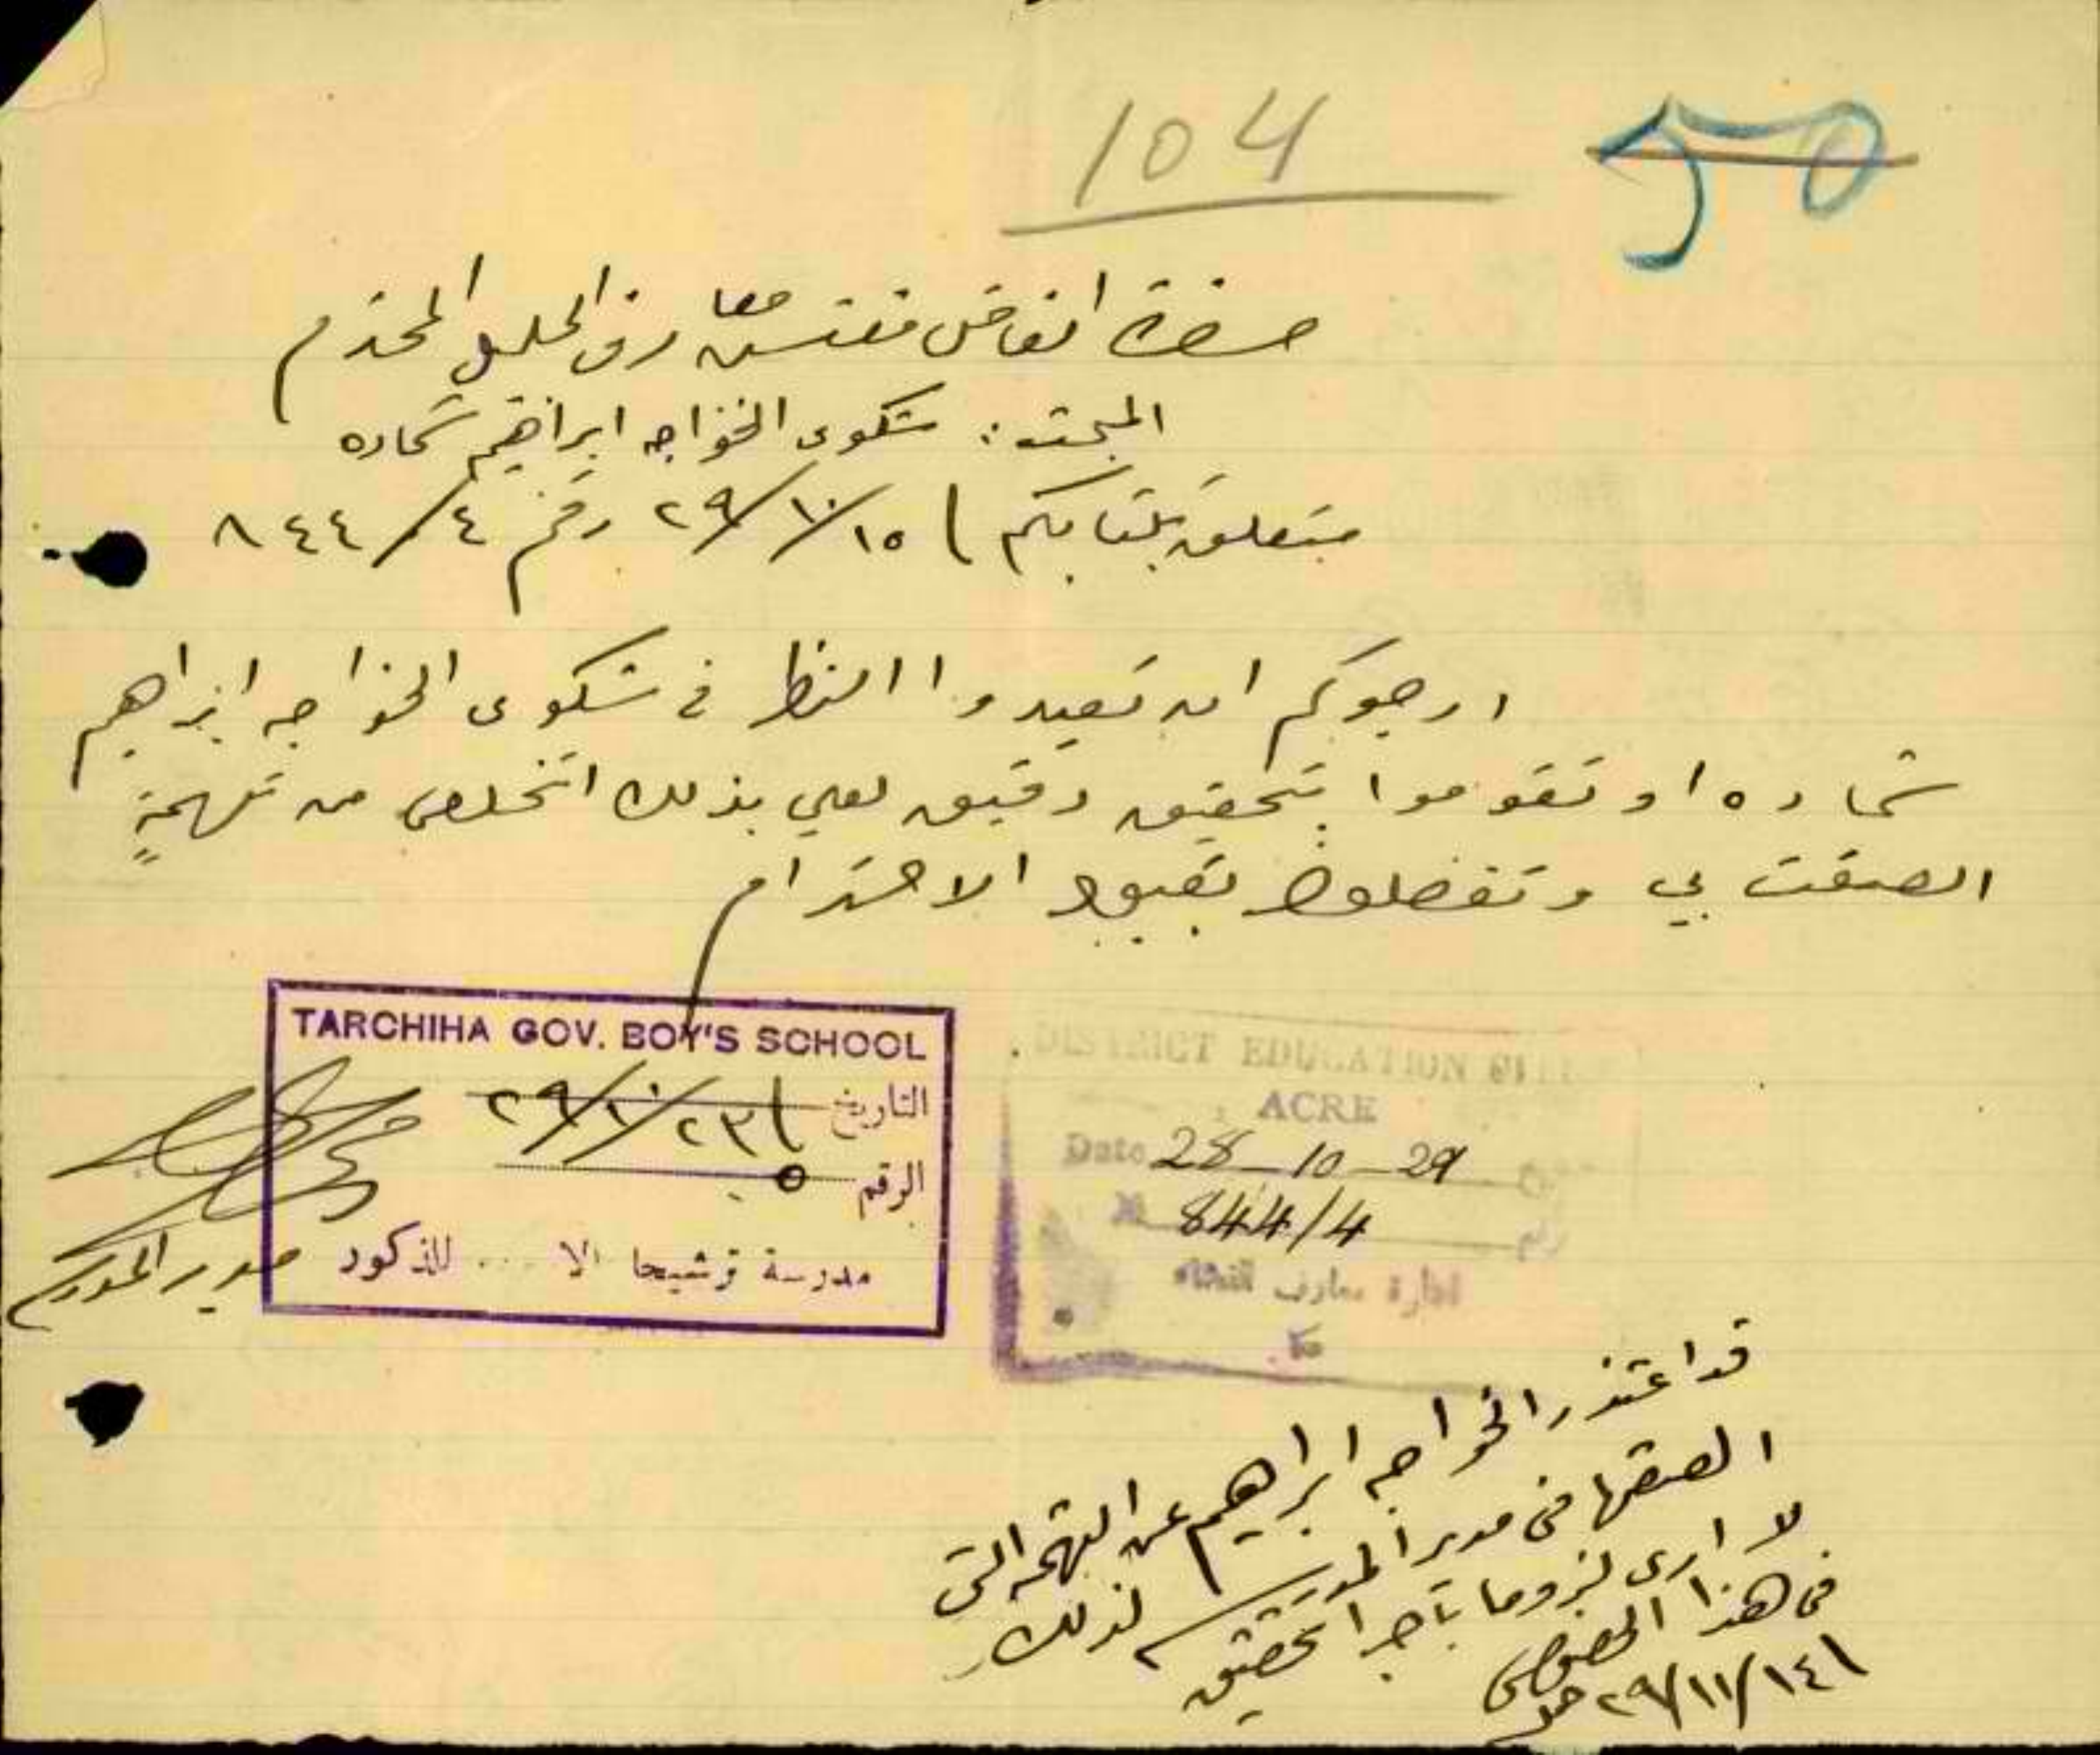 104
50
حضرة الفاضل مفتش معارف الجليل المحترم
المبحث: شكوى الخواجه ابراهيم شحاده
متعلق بكتابكم ١٥/١٠/٢٩ رقم ٨٤٤/٤
ارجوكم ان تعيدوا النظر في شكوى الخواجه ابراهيم
شحاده او تقوموا بتحقيق دقيق لعلي بذلك اتخلص من تهمةٍ
الصقت بي وتفضلوا بقبول الاحترام
TARCHIHA GOV. BOY'S SCHOOL
التاريخ ٢٣/١٠/٢٩
الرقم ٥
مدرسة ترشيحا الا للذكور
مدير المدرسة
DISTRICT EDUCATION
ACRE
Date 28-10-29
No 844/4 رقم
ادارة معارف
عكا
قد اعتذر الخواجه ابراهيم عن التهمه التي
الصقها في مدير المدرسه لذلك
لا ارى لزوما باجرا تحقيق
في هذا الخصوص
١٤/١١/٢٩